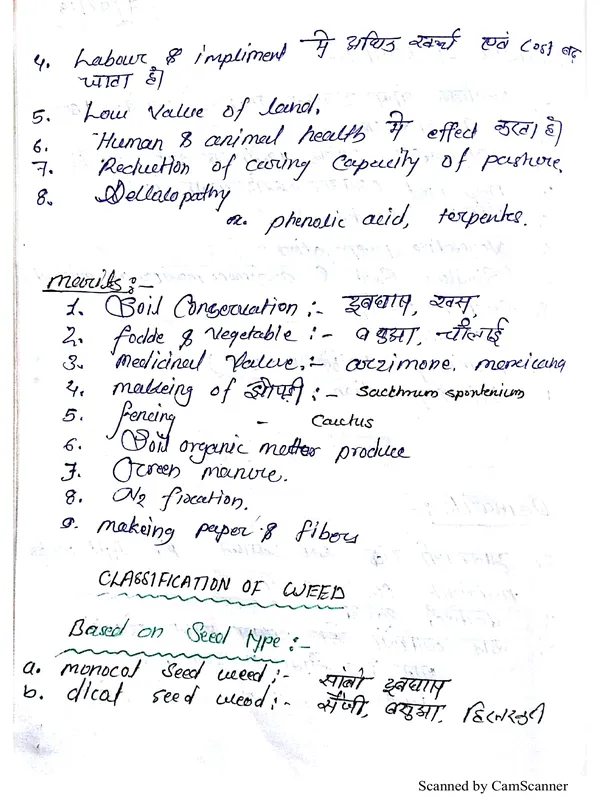 4. Labour & impliment में अधिक खर्च एवं Cost बढ़
जाता है।
5. Low value of land.
6. Human & animal health में effect करता है।
7. Reduction of caring capacity of pasture.
8. Aellalopathy
ex. phenolic acid, terpentes.
merits:-
1. Soil Conservation :- दूबघास, खस,
2. fodde & vegetable :- बथुआ, चौलाई
3. medicinal value.:- arzimone. mexicana
4. makeing of झोपड़ी :- Sacthrum spontenium
5. fencing - Cauctus
6. Soil organic metter produce
7. Green manure.
8. N2 fixation.
9. makeing paper & fibors
CLASSIFICATION OF WEED
Based on Seed Type:-
a. monocot seed weed:- सांवा दूबघास
b. dicat seed weed:- सैंजी, बथुआ, हिरनखुरी
Scanned by CamScanner